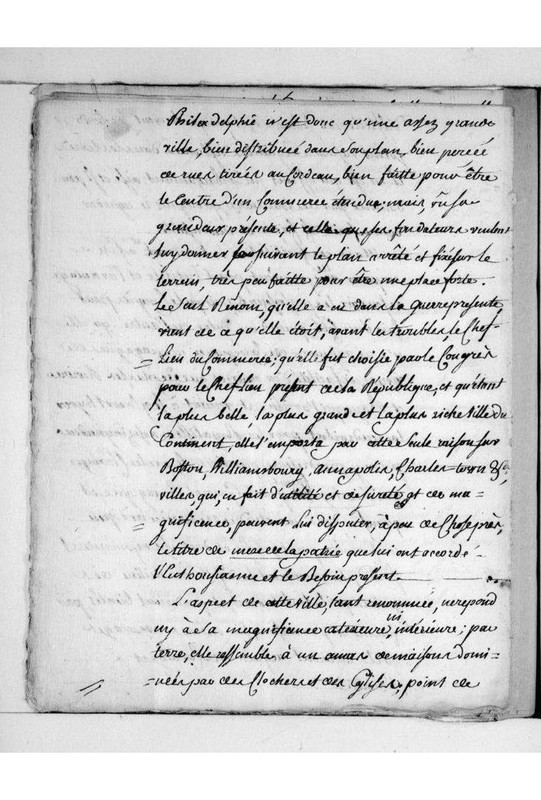 Philadelphie n'est donc qu'une assez grande
ville, bien distribueé dans son plan, bien perceé
de rues tireés au Cordeau, bien faitte pour être
le Centre d'un Commerce étendu, mais vû sa
grandeur présente, et celle que ses fondateurs veulent
luy donner en suivant le plan arrêté et fixé sur le
terrein, très peu faitte pour être une place forte.
Le seul Rénom, qu'elle a eu dans la guerre présente,
vient de ce qu'elle étoit, avant les troubles, le Chef-
Lieu du Commerce; qu'elle fut choisie par le Congrès
pour le Chef lieu présent de la République, et qu'étant
la plus belle, la plus grande et la plus riche ville du
Continent, elle l'emporta par cette seule raison sur
Boston, Williamsbourg, annapolis, Charles-town &ca.
villes, qui, en fait d'utilité et de sûreté, et de ma-
gnificence, peuvent lui disputer, à peu de Chose près,
le titre de mere de la patrie que lui ont accordé
l'Enthousiasme et le Besoin présent.
L'aspect de cette ville, tant renommeé, ne repond
ny à sa magnificence extérieure, ni intérieure; par
terre, elle ressemble à un amas de maisons domi-
neés par des Clochers et des Eglises, point de